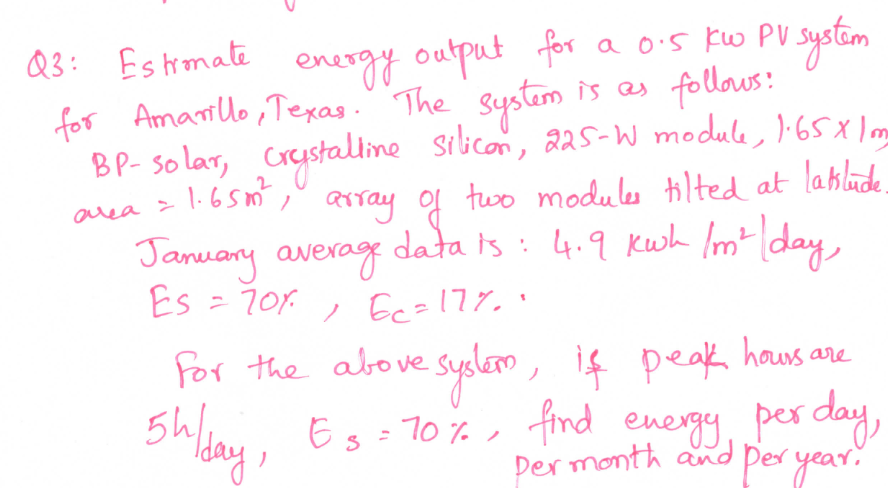 Q3: Estimate energy output for a 0.5 kW PV system
for Amarillo, Texas. The system is as follows:
BP-Solar, crystalline silicon, 225-W module, 1.65 x 1 m
area = 1.65 m², array of two modules tilted at latitude.
January average data is : 4.9 kwh /m²/day,
Es = 70%, Ec = 17%.
For the above system, if peak hours are
5h/day, Es = 70%, find energy per day,
per month and per year.